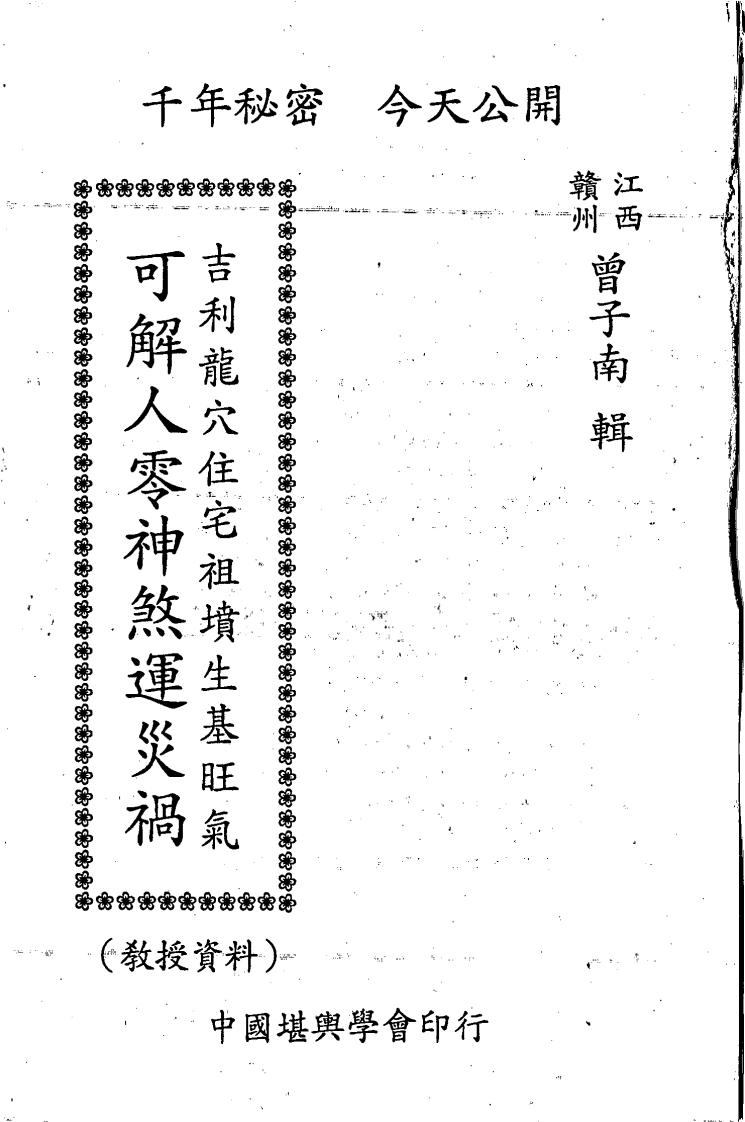 千年秘密　今天公開
江西
贛州
曾子南　輯
吉利龍穴住宅祖墳生基旺氣
可解人零神煞運災禍
（教授資料）
中國堪輿學會印行